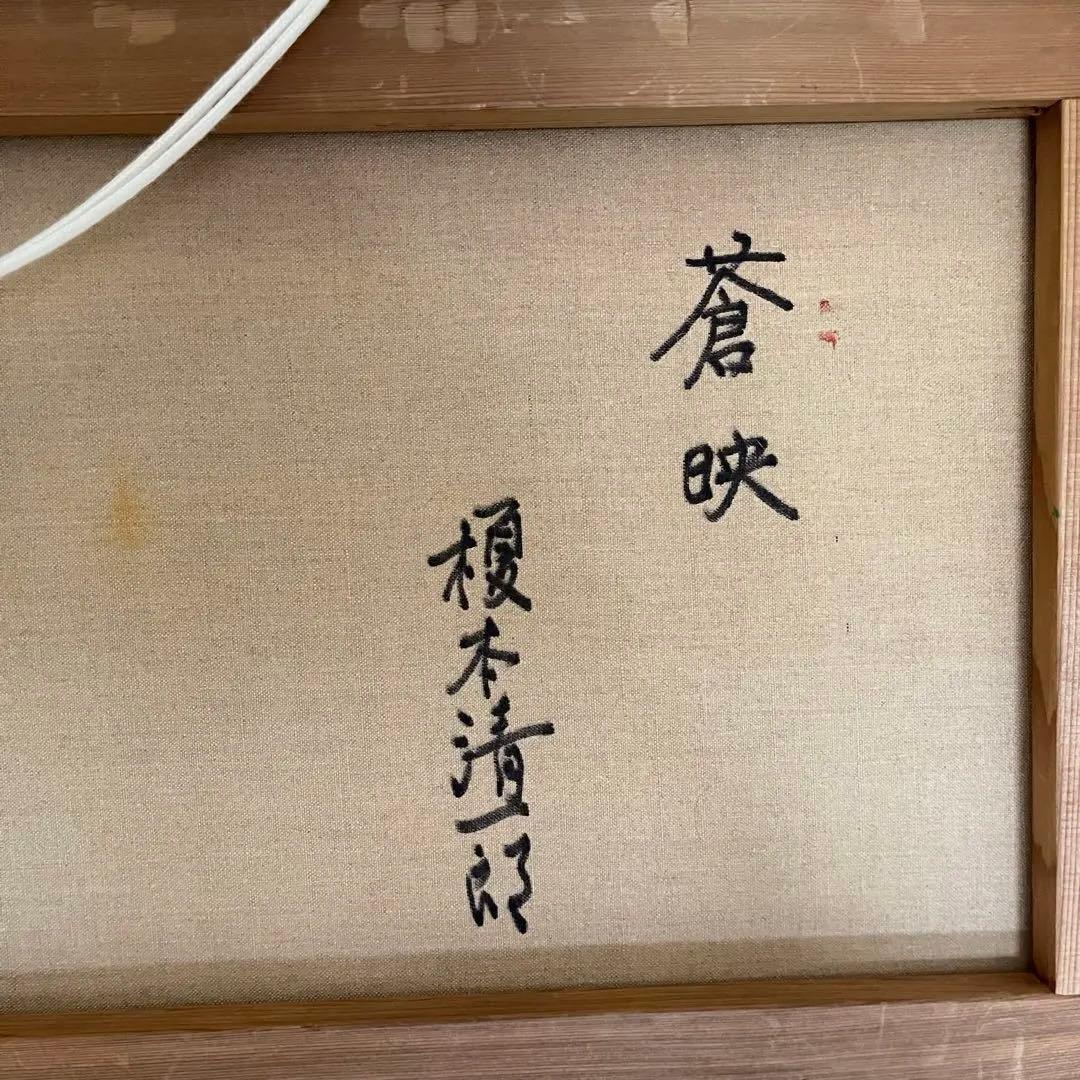 蒼映
榎本清一郎